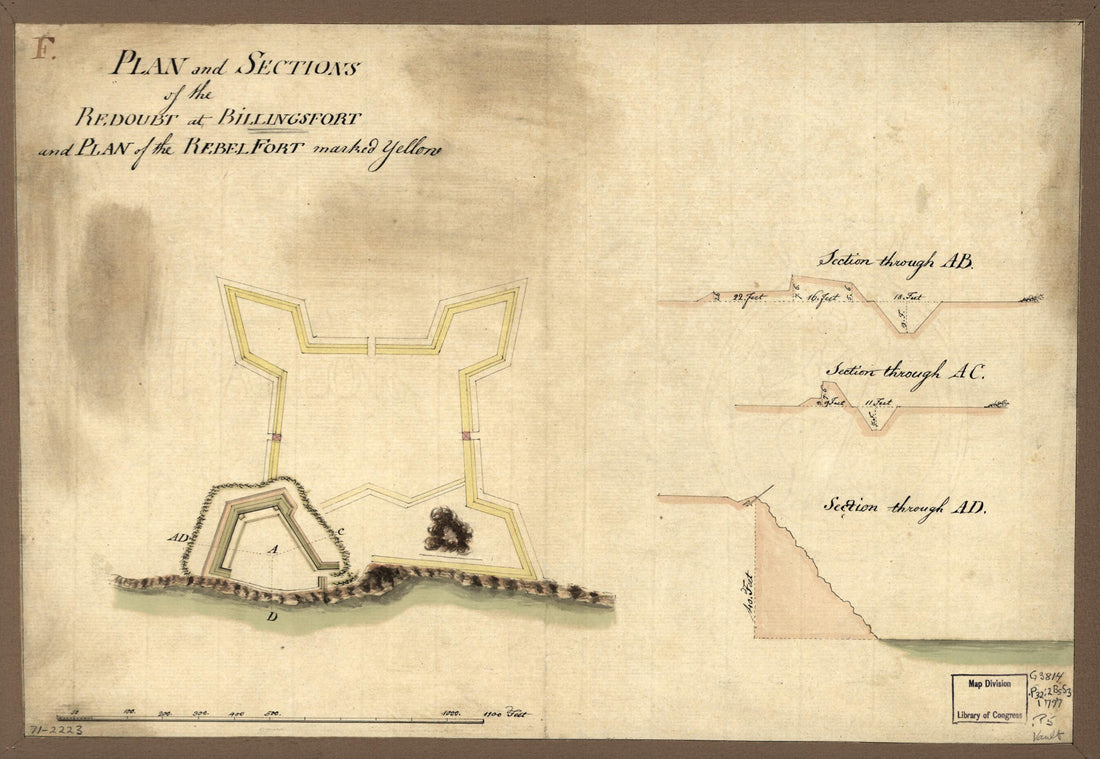 F.
PLAN and SECTIONS
of the
REDOUBT at BILLINGSFORT
and PLAN of the REBEL FORT marked Yellow
Section through AB.
22 feet
16 feet
18 Feet
Section through AC.
9 feet
11 Feet
Section through AD.
40 Feet
AD
A
C
D
50
100.
200.
300.
400
500.
1000.
1100 Feet
71-2223
Map Division
Library of Congress
G3814
1777
.P5
Vault